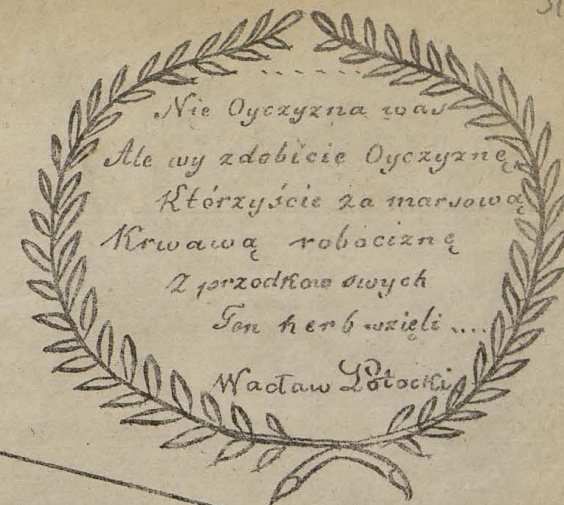 . . . . . . .
Nie Oyczyzna was
Ale wy zdobicie Oyczyznę,
Którzyście za marsową
Krwawą robociznę
Z przodkow swych
Ten herb wzięli ....
Wacław Potocki